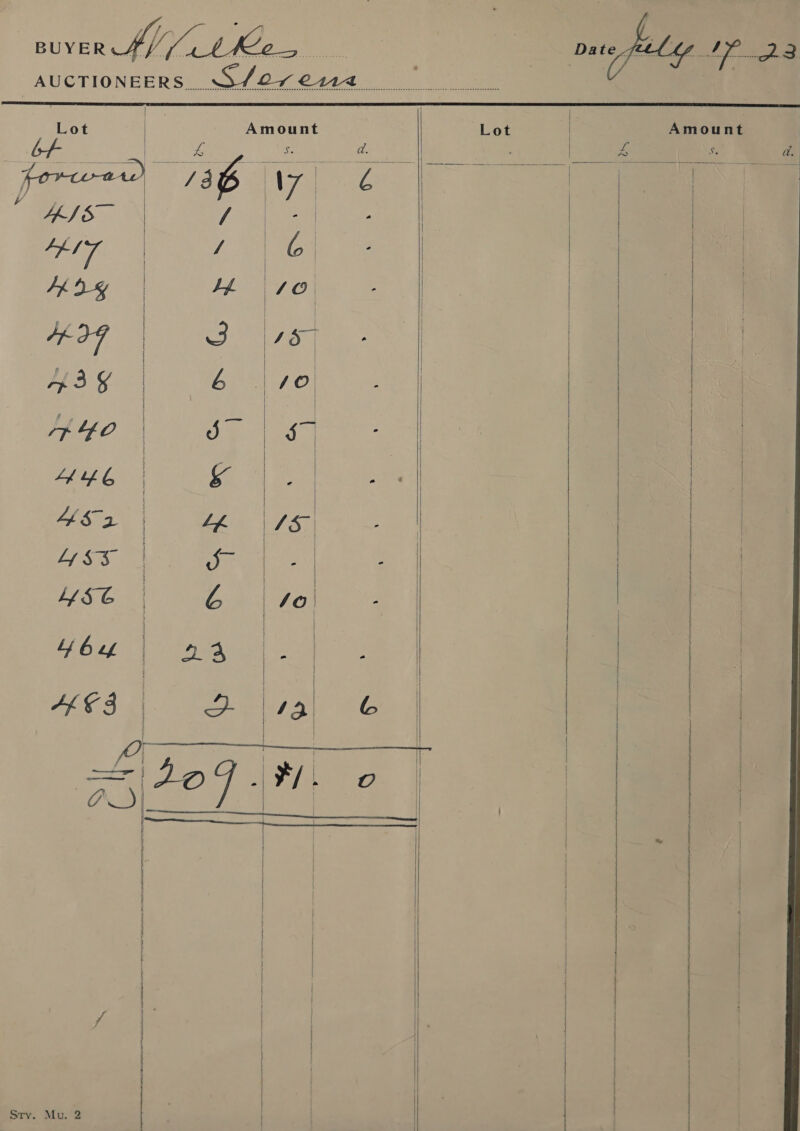 BUYER Date July 17 23
AUCTIONEERS Stevens
Lot Amount Lot Amount
£ s. d. £ s. d.
forward 136 17 6
415 1 - -
417 1 6 -
428 4 10 -
429 3 15 -
438 6 10 -
440 5 5 -
446 8 - -
452 4 15 -
455 5 - -
456 6 10 -
464 23 - -
483 2 12 6
£209. 1. 0
Sty. Mu. 2